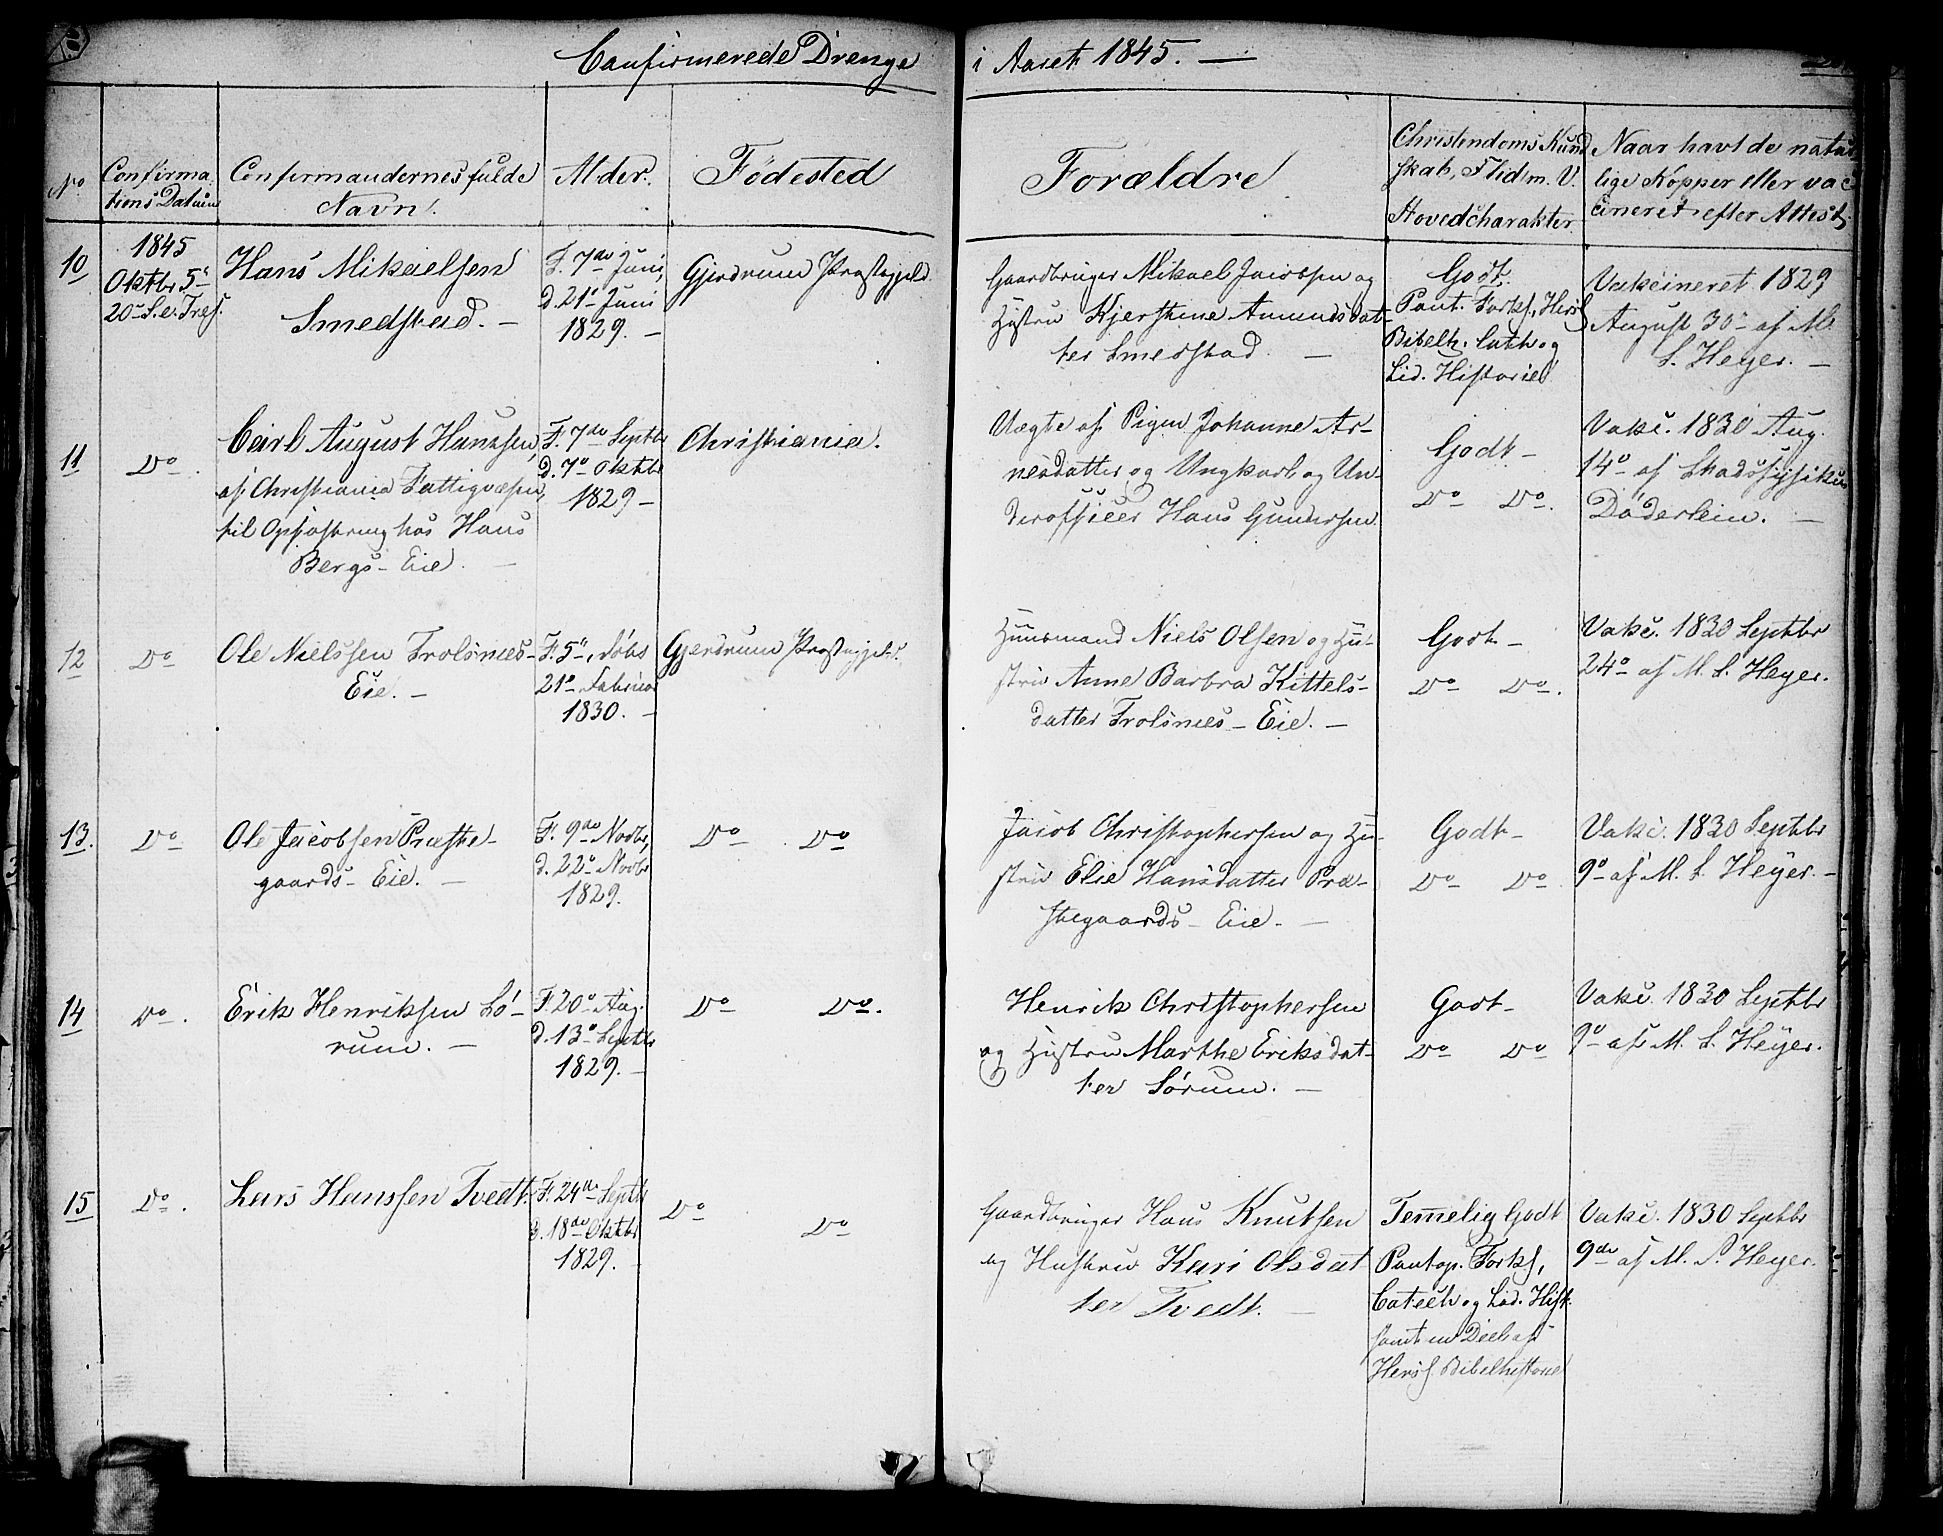 Confirmerede Drenge i Aaret 1845. —
No
Confirma
tions Datum
Confirmandernes fulde
Navn.
Alder.
Födested
Forældre
Christendoms Kund
skab, Flid m. V.
Hovedcharakter
Naar havt de natur
lige Kopper eller vac
cineret efter Attest.
10
1845
Oktbr 5te
20de S. e. Tref.
Hans Mikaelsen
Smedstad. —
F. 7de Juni,
d. 21de Juni
1829. —
Gjerdrum Præstegjeld
Gaardbruger Mikael Jacobsen og
Hustru Kjerstine Amundsdat-
ter Smedstad. —
Godt.
Pont. Forkl., Hersl.
Bibelh. Catch og
Lid. Historie
Vakcineret 1829
August 30te af M.
S. Heyer. —
11
Do.
Carl August Hanssen,
af Christiania Fattigvæsen,
til Opfostring hos Hans
Bergs-Eie. —
F. 7de Septbr
d. 7de Oktbr
1829 —
Christiania.
Uægte af Pigen Johanne Ar-
nesdatter og Ungkarl og Un-
derofficer Hans Gundersen
Godt —
Do Do.
Vakc. 1830 Aug.
14de af Stadsfysikus
Döderlein. —
12
Do
Ole Nielssen Trolsnees-
Eie. —
F. 5te, döbt
21de Februar
1830. —
Gjerdrum Præstegjeld.
Huusmand Niels Olsen og Hu-
stru Anne Barbra Kittels-
datter Trolsnees-Eie. —
Godt —
Do Do.
Vakc. 1830 Septbr
24de af M. S. Heyer.
13.
Do
Ole Jacobsen Præste-
gaards-Eie. —
F. 9de Novbr,
d. 22de Novbr
1829.
Do Do
Jacob Christophersen og Hu-
stru Elie Hansdatter Præ-
stegaards-Eie. —
Godt —
Do Do
Vakc. 1830 Septbr
9de af M. S. Heyer. —
14
Do.
Erik Henriksen Sö-
rum. —
F. 20de Aug.
d. 13de Septbr
1829. —
Do Do.
Henrik Christophersen
og Hustru Marthe Eriksdat-
ter Sörum. —
Godt —
Do Do
Vakc. 1830 Septbr
9de af M. S. Heyer.
15
Do.
Lars Hanssen Tvedt.
F. 24de Septbr
d. 18de Oktbr
1829. —
Do Do
Gaardbruger Hans Knutsen
og Hustru Kari Olsdat
ter Tvedt. —
Temelig Godt
Pontop. Forkl,
Catech og Lid. Hist.
samt en Deel af
Hersl. Bibelhistorie
Vakc. 1830 Septbr
9de af M. S. Heyer.